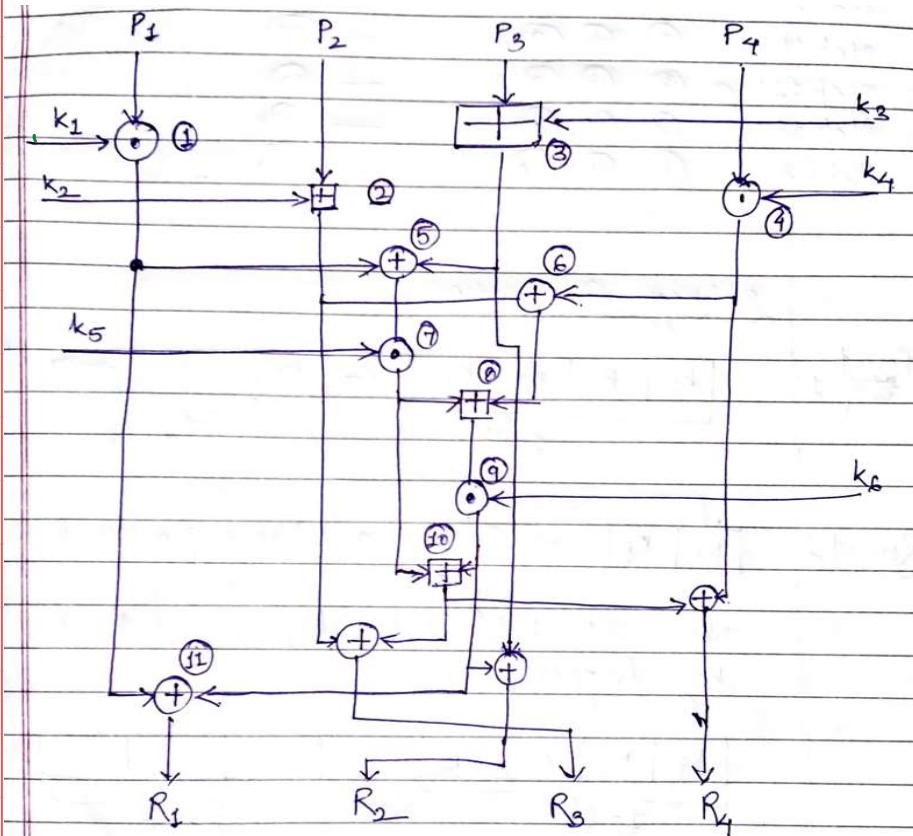 P1 P2 P3 P4
k1 ① k3
③
k2 ② k4
④
⑤
⑥
k5 ⑦
⑧
⑨ k6
⑩
⑪
R1 R2 R3 R4